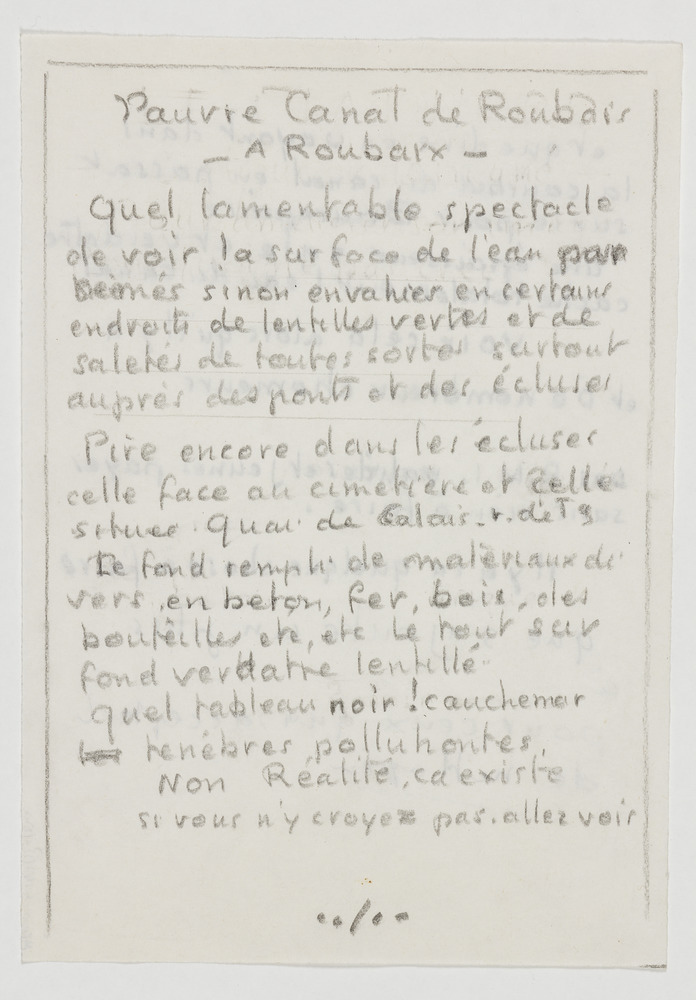 Pauvre Canal de Roubais
- A Roubaix -
Quel lamentable spectacle
de voir la surface de l'eau par
semés sinon envahier en certains
endroits de lentilles vertes et de
saletés de toutes sortes surtout
auprés des ponts et des écluses
Pire encore dans les écluses
celle face au cimetière et celle
situee Quai de Calais. r. de Tg
Le fond rempli de matèriaux di
vers, en beton, fer, bois, des
bouteilles etc, etc Le tout sur
fond verdatre lentillé
quel tableau noir ! cauchemar
tenébres polluhontes,
Non Réalité, ca existe
si vous n'y croyez pas. allez voir
../..